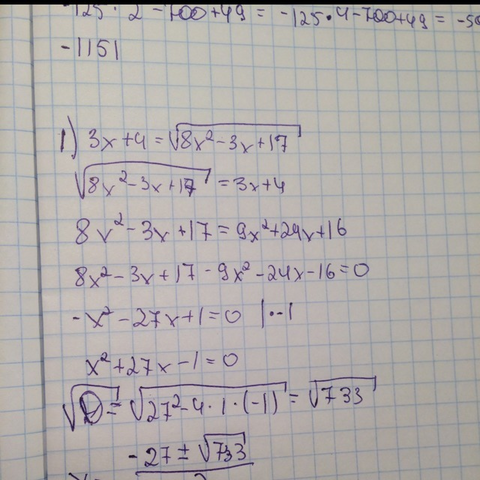 -125·2-700+49 = -125·4-700+49 = -50
-1151
1) 3x+4=√(8x²-3x+17)
√(8x²-3x+17)=3x+4
8x²-3x+17=9x²+24x+16
8x²-3x+17-9x²-24x-16=0
-x²-27x+1=0 |·-1
x²+27x-1=0
√D=√(27²-4·1·(-1))=√733
-27±√733